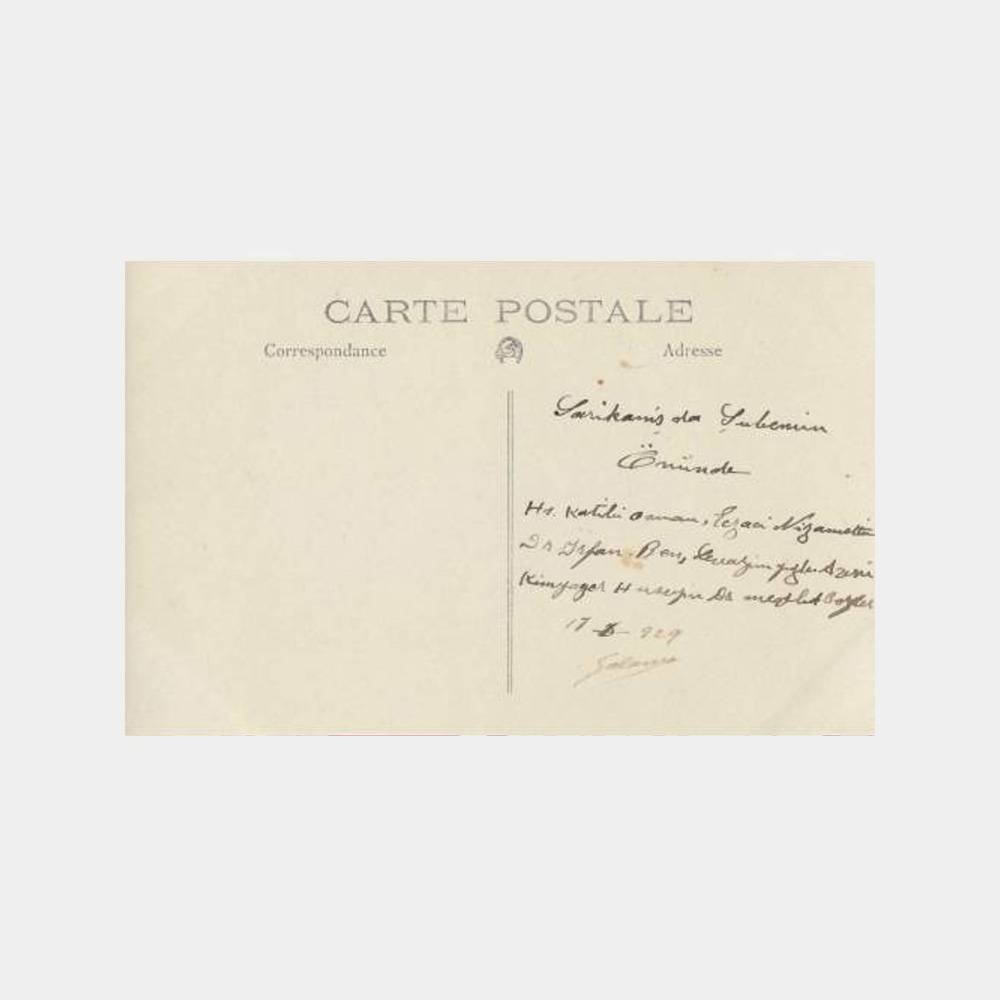 CARTE POSTALE
Correspondance
Adresse
Sarikamış da Şubemin
Önünde
Hs. Katibi Osman, Eczaci Nizamettin
Dr İrfan. Ben, Levazim
Kimyager Huseyin Dr
17 929